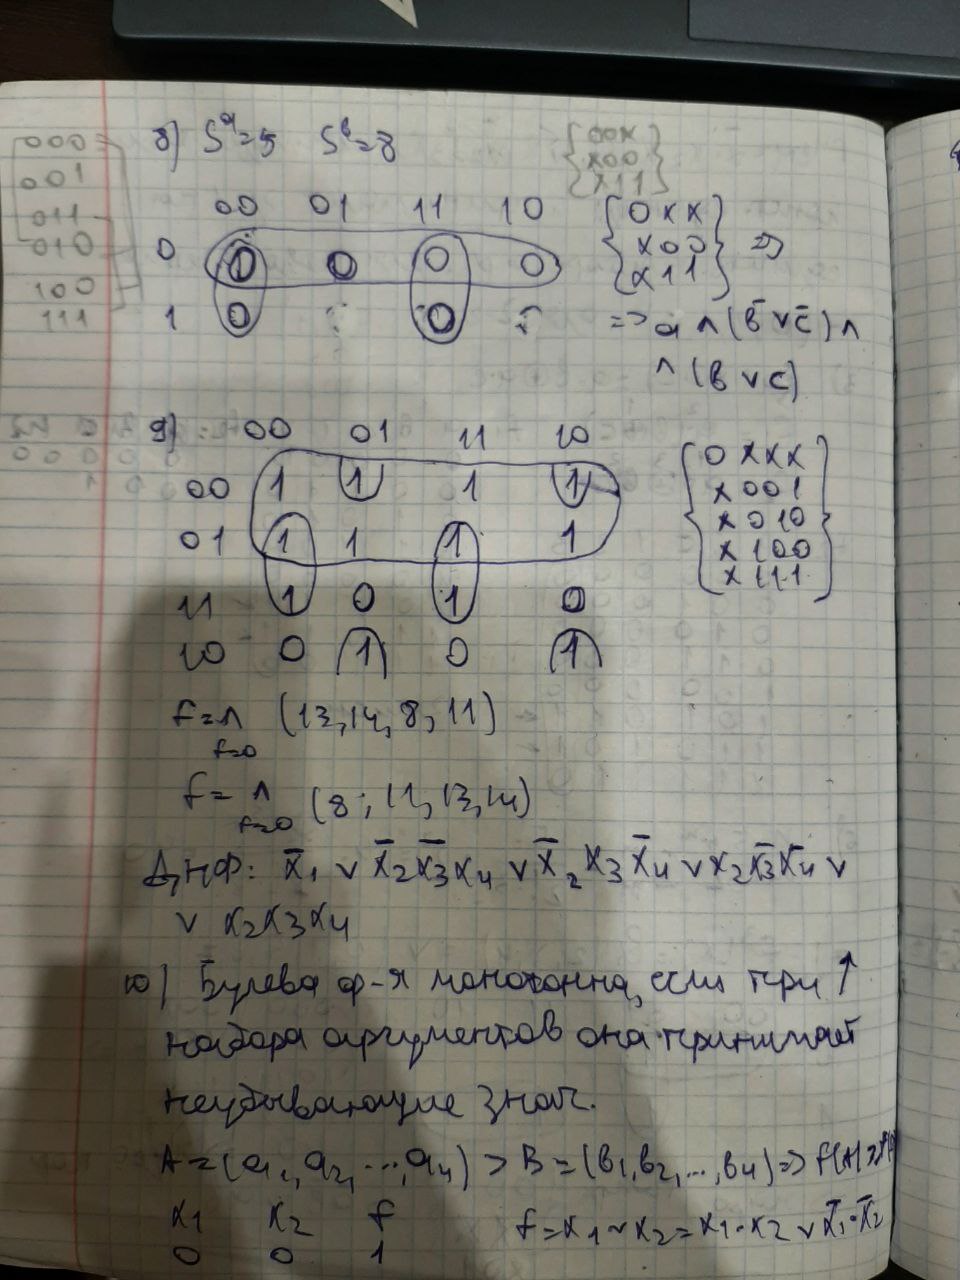 000
001
011
010
100
111
8) Sᵃ=5 Sᵇ=8
{00x
x00
x11}
00 01 11 10
0 0 0 0 0
1 0 0
{0xx
x00
x11} =>
=> a ∧ (b̄ ∨ c̄) ∧
∧ (b ∨ c)
9) 00 01 11 10
00 1 1 1 1
01 1 1 1 1
11 1 0 1 0
10 0 1 0 1
{0xxx
x001
x010
x100
x111}
f=∧ (13,14,8,11)
f=0
f=∧ (8,11,13,14)
f=0
ДНФ: x̄₁ ∨ x̄₂x̄₃x₄ ∨ x̄₂x₃x̄₄ ∨ x₂x̄₃x̄₄ ∨
∨ x₂x₃x₄
10) Булева ф-я монотонна, если при ↑
набора аргументов она принимает
неубывающие знач.
A=(a₁, a₂, ..., a₄) > B=(b₁, b₂, ..., b₄) => f(A)≥f(B)
x₁ x₂ f
0 0 1
f=x₁~x₂=x₁·x₂ ∨ x̄₁·x̄₂